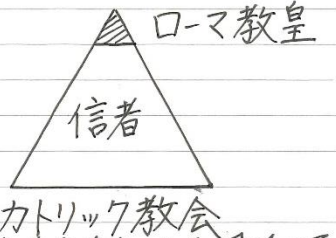 ローマ教皇
信者
カトリック教会